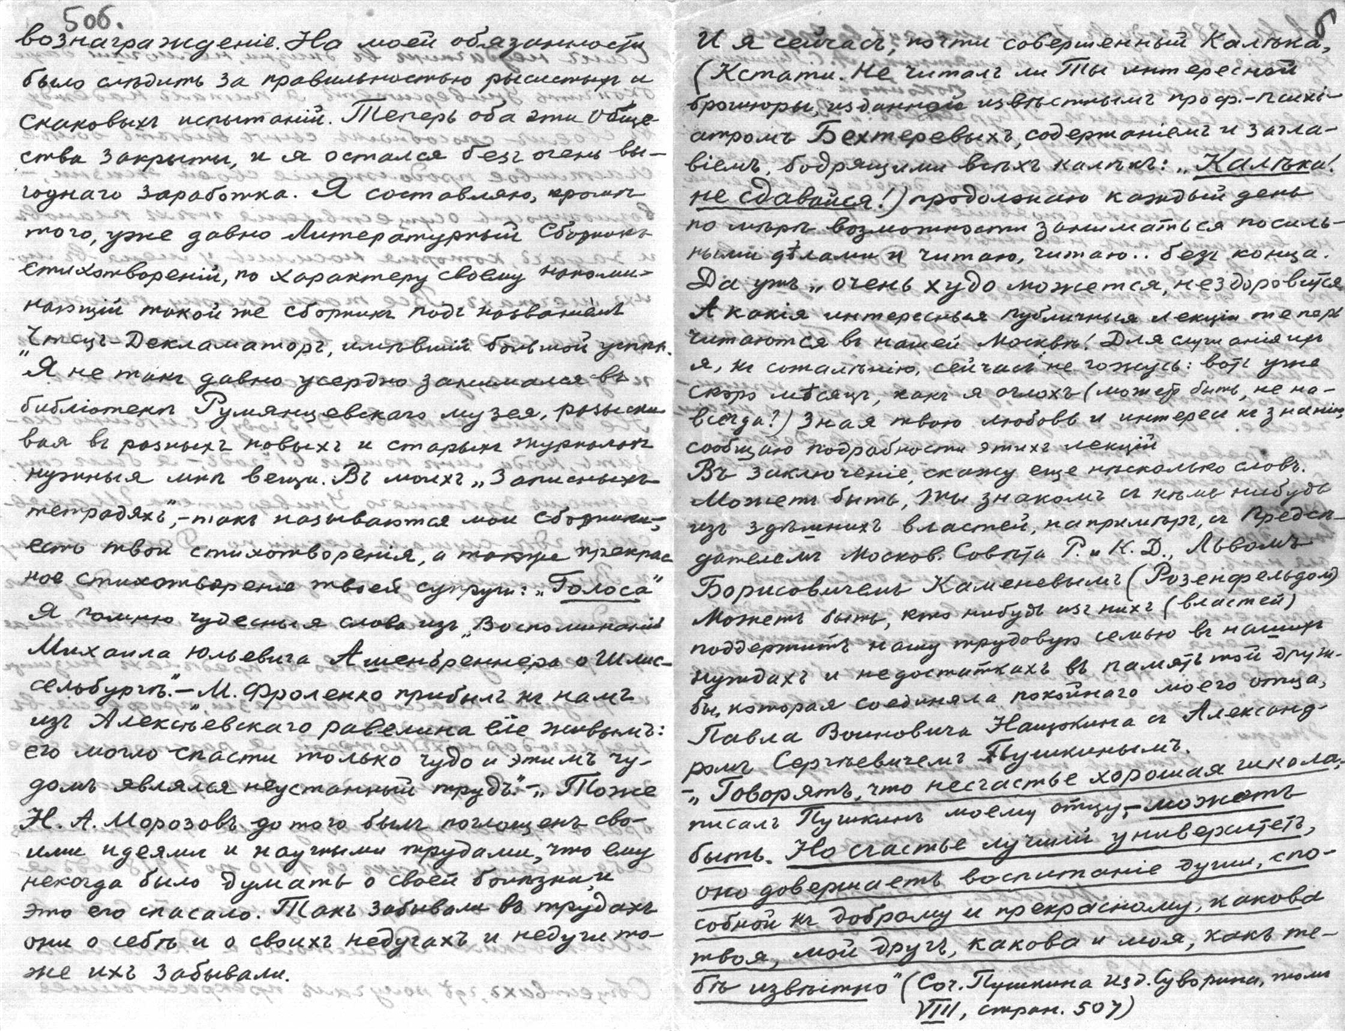 5об.
вознагражденіе. На моей обязанности
было слѣдить за правильностью рысистыхъ и
скаковыхъ испытаній. Теперь оба эти Обще-
ства закрыты, и я остался безъ очень вы-
годнаго заработка. Я составляю, кромѣ
того, уже давно Литературный Сборникъ
стихотвореній, по характеру своему напоми-
нающій такой же сборникъ подъ названіемъ
"Чтецъ-Декламаторъ, имѣвшій большой успѣхъ.
Я не такъ давно усердно занимался въ
библіотекѣ Румянцевскаго музея, разыски-
вая въ разныхъ новыхъ и старыхъ журналахъ
нужныя мнѣ вещи. Въ моихъ „Записныхъ
тетрадяхъ", – такъ называются мои сборники, –
есть твои стихотворенія, а также прекрас-
ное стихотвореніе твоей супруги: „Голоса"
Я помню чудесныя слова изъ „Воспоминаній
Михаила Юльевича Ашенбреннера о Шлис-
сельбургѣ". – М. Фроленко прибылъ къ намъ
изъ Алексѣевскаго равелина еле живымъ:
его могло спасти только чудо и этимъ чу-
домъ являлся неустанный трудъ". – „Тоже
Н. А. Морозовъ до того былъ поглощенъ сво-
ими идеями и научными трудами, что ему
некогда было думать о своей болѣзни, и
это его спасало. Такъ забывали въ трудахъ
они о себѣ и о своихъ недугахъ и недуги то-
же ихъ забывали.
6
И я сейчасъ, почти совершенный Калѣка,
(Кстати. Не читалъ ли Ты интересной
брошюры, изданной извѣстнымъ проф.-психі-
атромъ Бехтеревыхъ, содержаніемъ и загла-
віемъ, бодрящими всѣхъ калѣкъ: „Калѣка!
не сдавайся!) продолжаю каждый день
по мѣрѣ возможности заниматься посиль-
ными дѣлами и читаю, читаю.. безъ конца.
Да ужъ „очень худо можется, нездоровится
А какія интересныя публичныя лекціи теперь
читаются въ нашей Москвѣ! Для слушанія ихъ
я, къ сожалѣнію, сейчасъ не гожусь: вотъ уже
скоро мѣсяцъ, какъ я оглохъ (можетъ быть, не на-
всегда?) Зная твою любовь и интересъ къ знанію,
сообщаю подробности этихъ лекцій
Въ заключеніе, скажу еще нѣсколько словъ.
Можетъ быть, ты знакомъ съ кѣмъ нибудь
изъ здѣшнихъ властей, напримѣръ, съ Предсѣ-
дателемъ Москов. Совѣта Р. и К. Д., Львомъ
Борисовичемъ Каменевымъ (Розенфельдом)
Можетъ быть, кто нибудь изъ нихъ (властей)
поддержитъ нашу трудовую семью въ нашихъ
нуждахъ и недостаткахъ въ память той друж-
бы, которая соединяла покойнаго моего отца,
Павла Воиновича Нащокина съ Александ-
ромъ Сергѣевичемъ Пушкинымъ.
– „Говорятъ, что несчастье хорошая школа,
писалъ Пушкинъ моему отцу, – можетъ
быть. Но счастье лучшій университетъ,
оно довершаетъ воспитаніе души, спо-
собной къ доброму и прекрасному, какова
твоя, мой другъ, какова и моя, какъ те-
бѣ извѣстно" (Соч. Пушкина изд. Суворина, томъ
VIII, стран. 507)